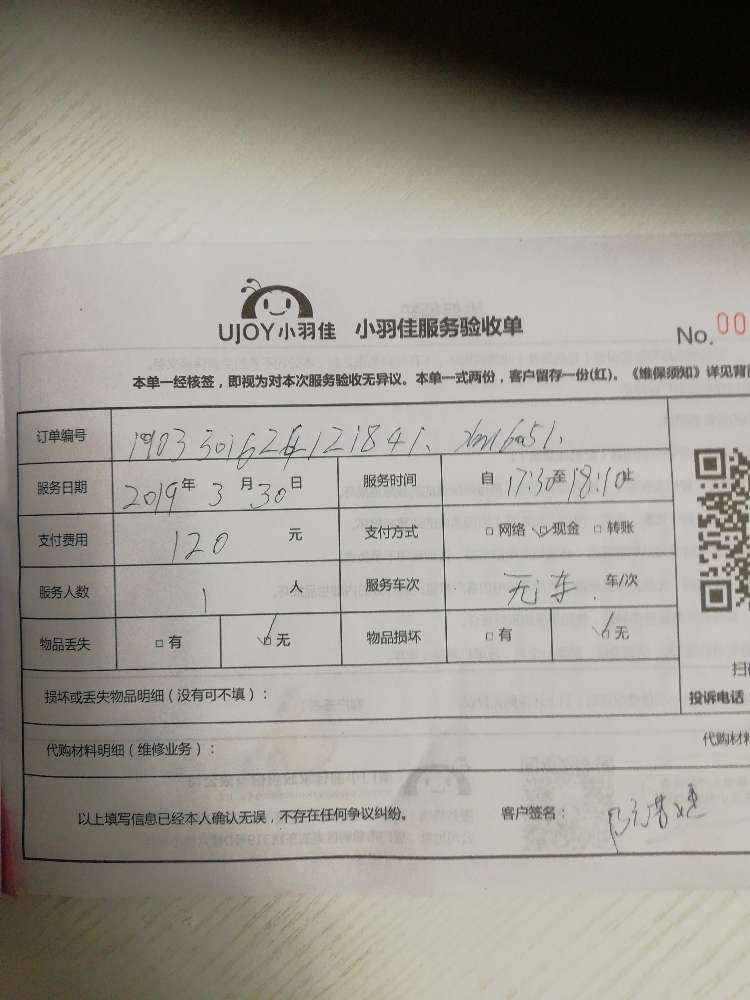 UJOY小羽佳 小羽佳服务验收单
No. 00
本单一经核签，即视为对本次服务验收无异议。本单一式两份，客户留存一份(红)。《维保须知》详见背面
订单编号
服务日期 2019年 3月 30日 服务时间 自 17:30至18:10止
支付费用 120 元 支付方式 □网络 ☑现金 □转账
服务人数 1 人 服务车次 无车 车/次
物品丢失 □有 ☑无 物品损坏 □有 ☑无
扫
损坏或丢失物品明细（没有可不填）： 投诉电话
代购材料明细（维修业务）： 代购材料
以上填写信息已经本人确认无误，不存在任何争议纠纷。 客户签名：